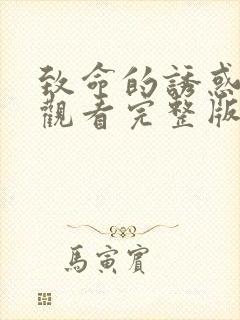 致命的誘惑
觀看完整版
馬寅賓